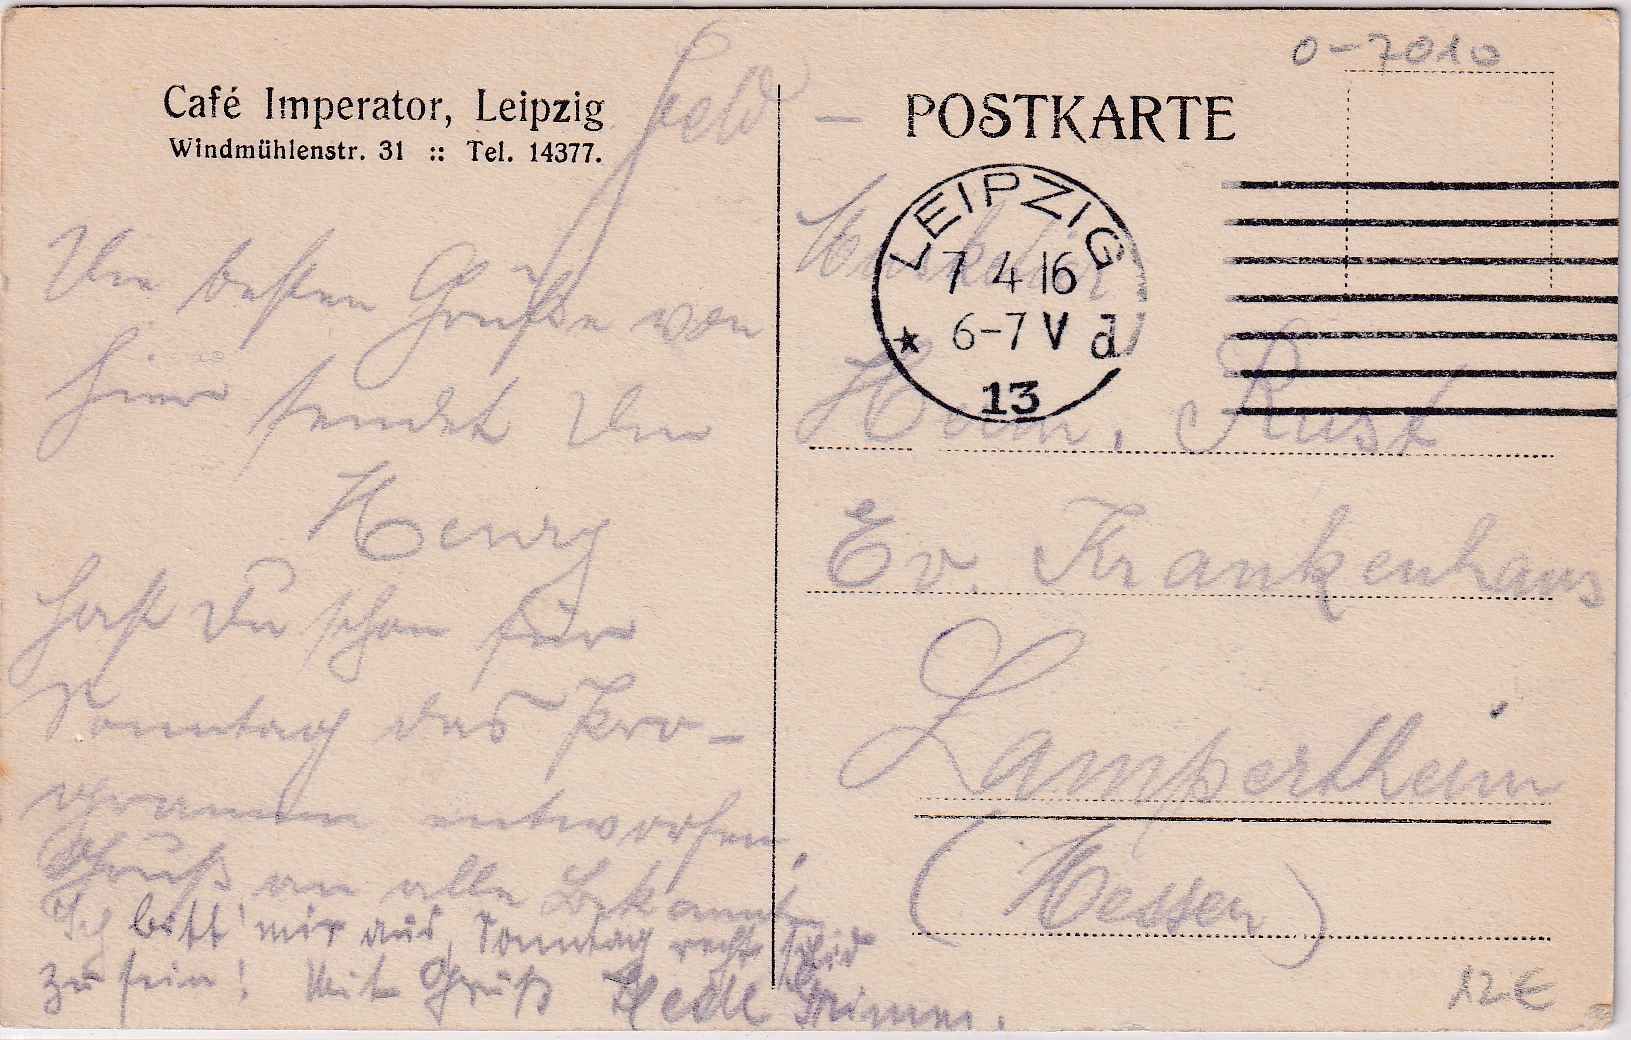 0-7010
Café Imperator, Leipzig
Windmühlenstr. 31 :: Tel. 14377.
Feld - POSTKARTE
LEIPZIG
7 4 16
6-7 V d
13
Die besten Grüße von
hier sendet Dir
Henry
Hast Du schon für
Sonntag das Pro-
gramm entworfen,
Gruß an alle Bekannte
Ich bitt' mir aus, Sonntag recht
zu sein! Mit Gruß
Musketier
Heinr. Rust
Ev. Krankenhaus
Lampertheim
(Hessen)
12€